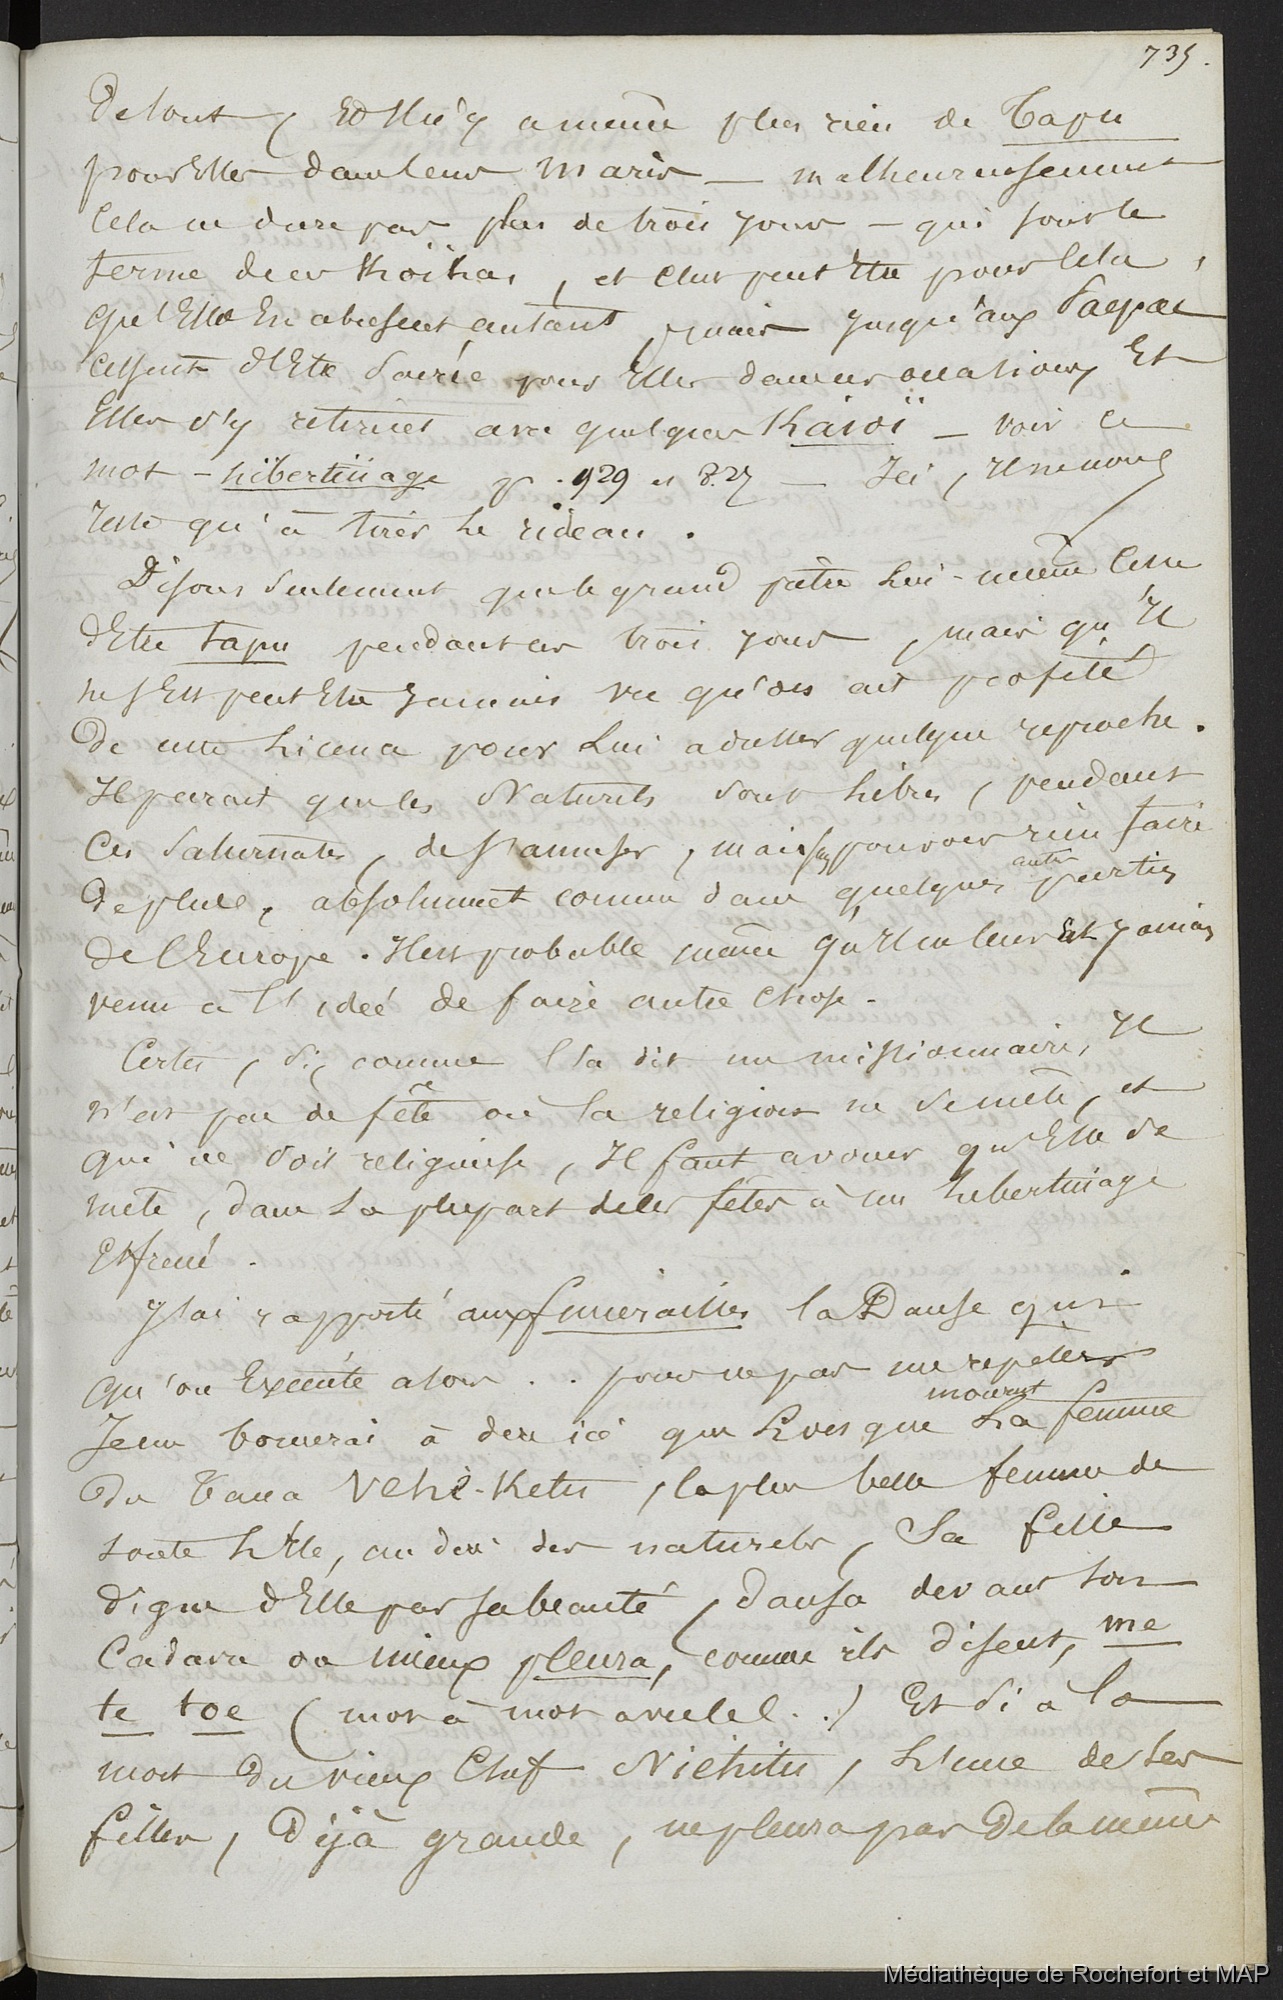 735.
De tout, Et Il n'y a même plus rien de Tapu
pour Elles dans leurs maris — malheureusement
Cela ne dure pas plus de trois jours — qui sont le
terme de ces Koïkas, et C'est peut Etre pour Cela,
qu'Elles En abusent autant, mais jusqu'aux
Cessent d'Etre Sacrés pour Elles dans ces occasions, Et
Elles s'y retirent avec quelques Kaioï — voir Ce
mot — libertinage p. 929 et 827 — Ici, Il ne nous
reste qu'à tirer le rideau.
Disons Seulement que le grand prêtre Lui-même Cesse
d'Etre tapu pendant ces trois jours, mais qu'Il
ne s'Est peut Etre jamais vu qu'on ait profité
De cette Licence pour Lui adresser quelque reproche.
Il parait que les Naturels sont Libres, pendant
Ces Saturnales, de s'amuser, mais sans pouvoir rien faire
De plus, absolument comme dans quelques autres parties
de l'Europe. Il est probable même qu'Il ne leur Est jamais
venu à l'idée de faire autre Chose.
Certes, Si, comme l'a dit un missionnaire, Il
n'est pas de fête où la religion ne se mêle, et
qui ne Soit religieuse, Il faut avouer qu'Elle se
mêle, dans La plupart de Ces fêtes à un Libertinage
Effrené.
J'ai rapporté aux funerailles la Danse qui
qu'on Execute alors .. pour ne pas me repeter
Je me bornerai à dire ici que Lorsque mourut La femme
Du Taua Vehi-Ketu, la plus belle femme de
toute l'Ile, au dire des naturels, Sa fille
digne d'Elle par sa beauté, Dansa devant son
Cadavre ou mieux pleura, comme ils disent, me
te toe (mot à mot avec le C..) Et Si à la
mort Du vieux Chef Niehitu, L'une de Ses
filles, Déjà grande, ne pleura pas De la même
Médiathèque de Rochefort et MAP